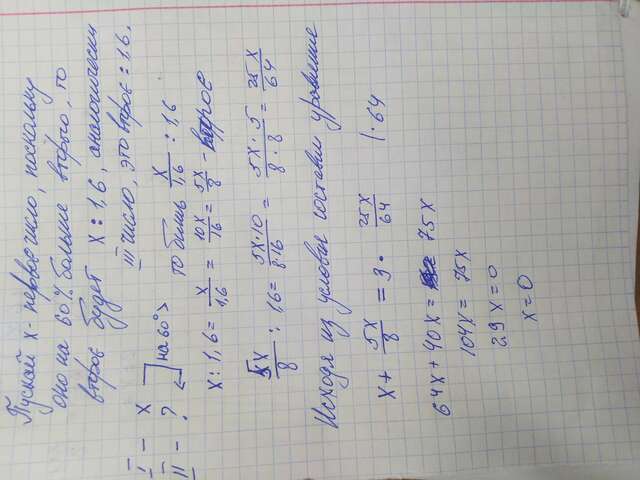 Пускай x - первое число, поскольку
оно на 60% больше второго, то
второе будет x : 1,6, аналогически
III число, это второе : 1,6.
I - x
II - ?
на 60% >
то бишь x/1,6 : 1,6
x : 1,6 = x/1,6 = 10x/16 = 5x/8 - второе
5x/8 : 1,6 = 5x·10/8·16 = 5x·5/8·8 = 25x/64
Исходя из условия составим уравнение
x + 5x/8 = 3 · 25x/64 |·64
64x + 40x = 75x
104x = 75x
29x = 0
x = 0